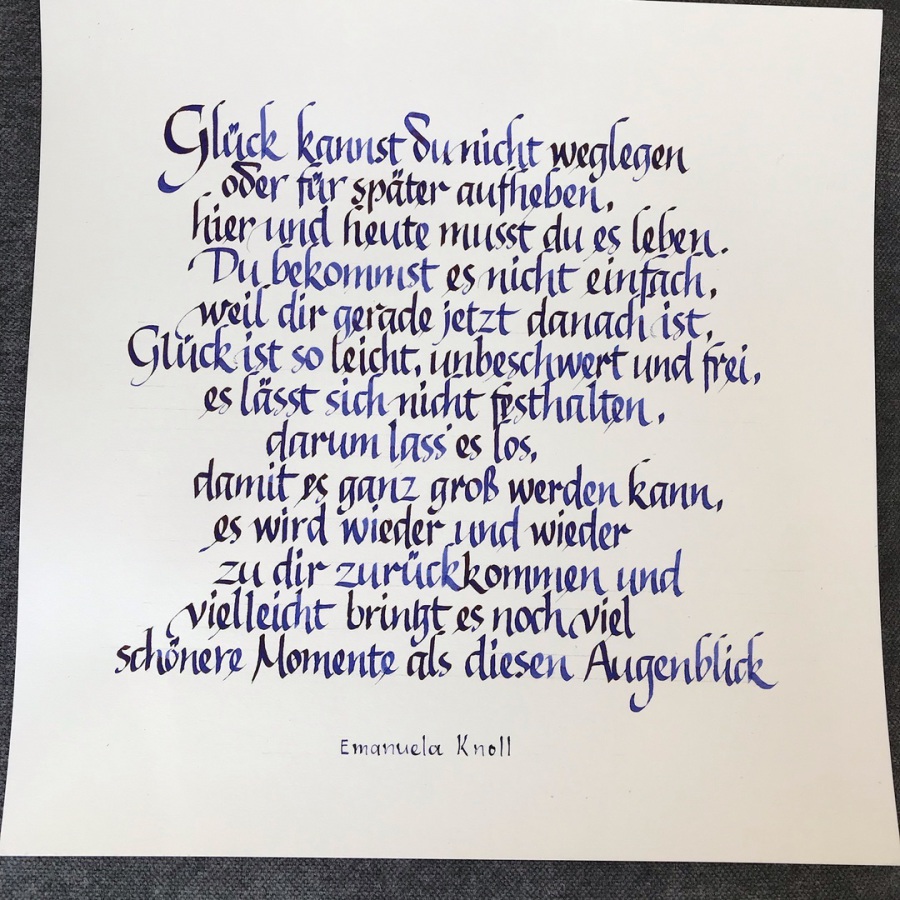 Glück kannst du nicht weglegen
oder für später aufheben,
hier und heute musst du es leben.
Du bekommst es nicht einfach,
weil dir gerade jetzt danach ist,
Glück ist so leicht, unbeschwert und frei,
es lässt sich nicht festhalten,
darum lass es los,
damit es ganz groß werden kann,
es wird wieder und wieder
zu dir zurückkommen und
vielleicht bringt es noch viel
schönere Momente als diesen Augenblick
Emanuela Knoll